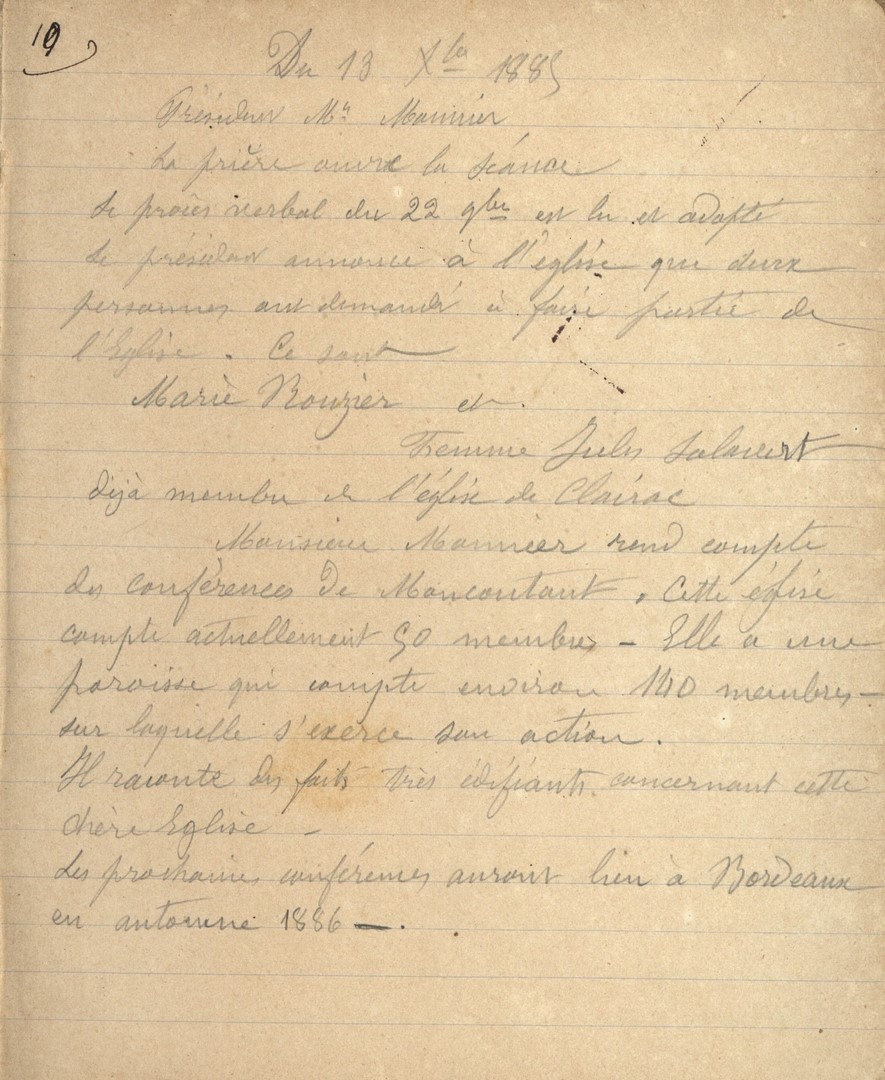 19
Du 13 Xbre 1885
Président Mr Monnier
La prière ouvre la séance
Le procès verbal du 22 9bre est lu et adopté
Le président annonce à l'église que deux
personnes ont demandé à faire partie de
l'Eglise. Ce sont
Marie Rouzier et
Femme Jules
déjà membre de l'église de Clairac
Monsieur Monnier rend compte
des conférences de Moncoutant. Cette église
compte actuellement 50 membres - Elle a une
paroisse qui compte environ 140 membres -
sur laquelle s'exerce son action.
Il raconte des faits très édifiants concernant cette
chère Eglise -
Les prochaines conférences auront lieu à Bordeaux
en automne 1886 -.